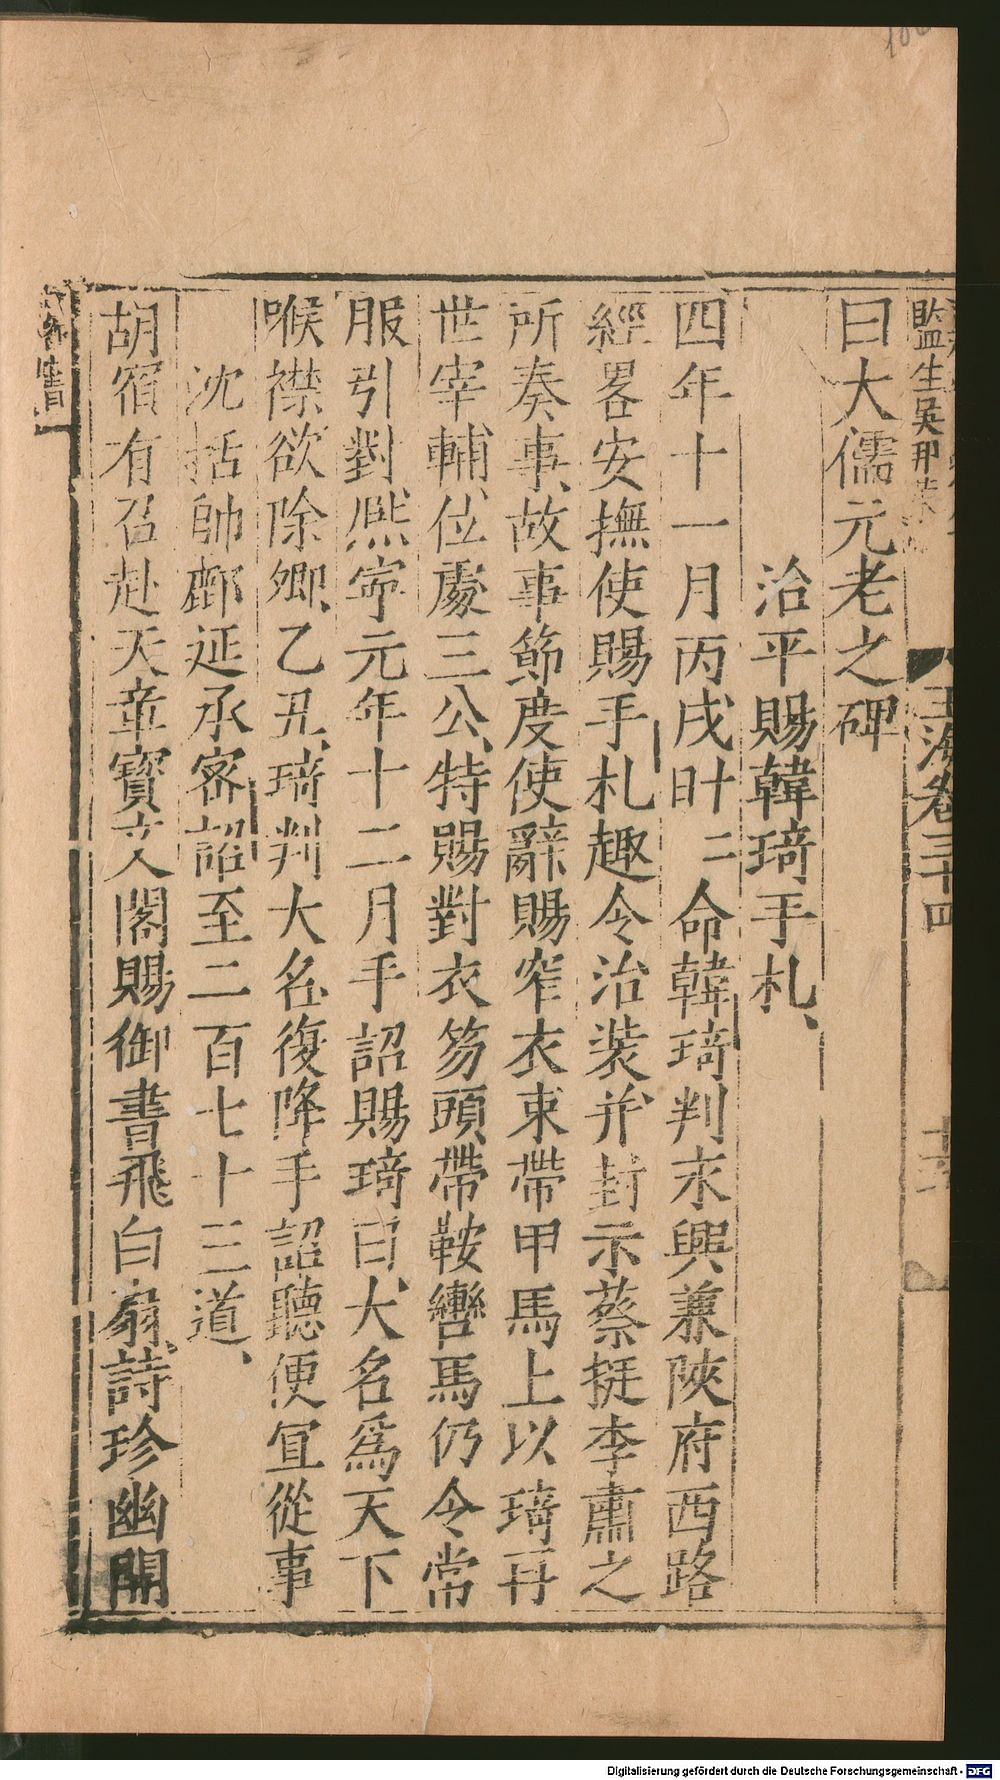 監生吳那
玉海卷三十四
曰大儒元老之碑
治平賜韓琦手札
四年十一月丙戌廿二命韓琦判永興兼陝府西路
經畧安撫使賜手札趣令治裝并封示蔡挺李肅之
所奏事故事節度使辭賜窄衣束帶甲馬上以琦再
世宰輔位處三公特賜對衣笏頭帶鞍轡馬仍令常
服引對熈寧元年十二月手詔賜琦曰大名爲天下
喉襟欲除卿乙丑琦判大名復降手詔聽便宜從事
沈括帥鄜延承密詔至二百七十三道
胡宿有召赴天章寶文閣賜御書飛白扇詩珍幽開
御書
Digitalisierung gefördert durch die Deutsche Forschungsgemeinschaft - DFG